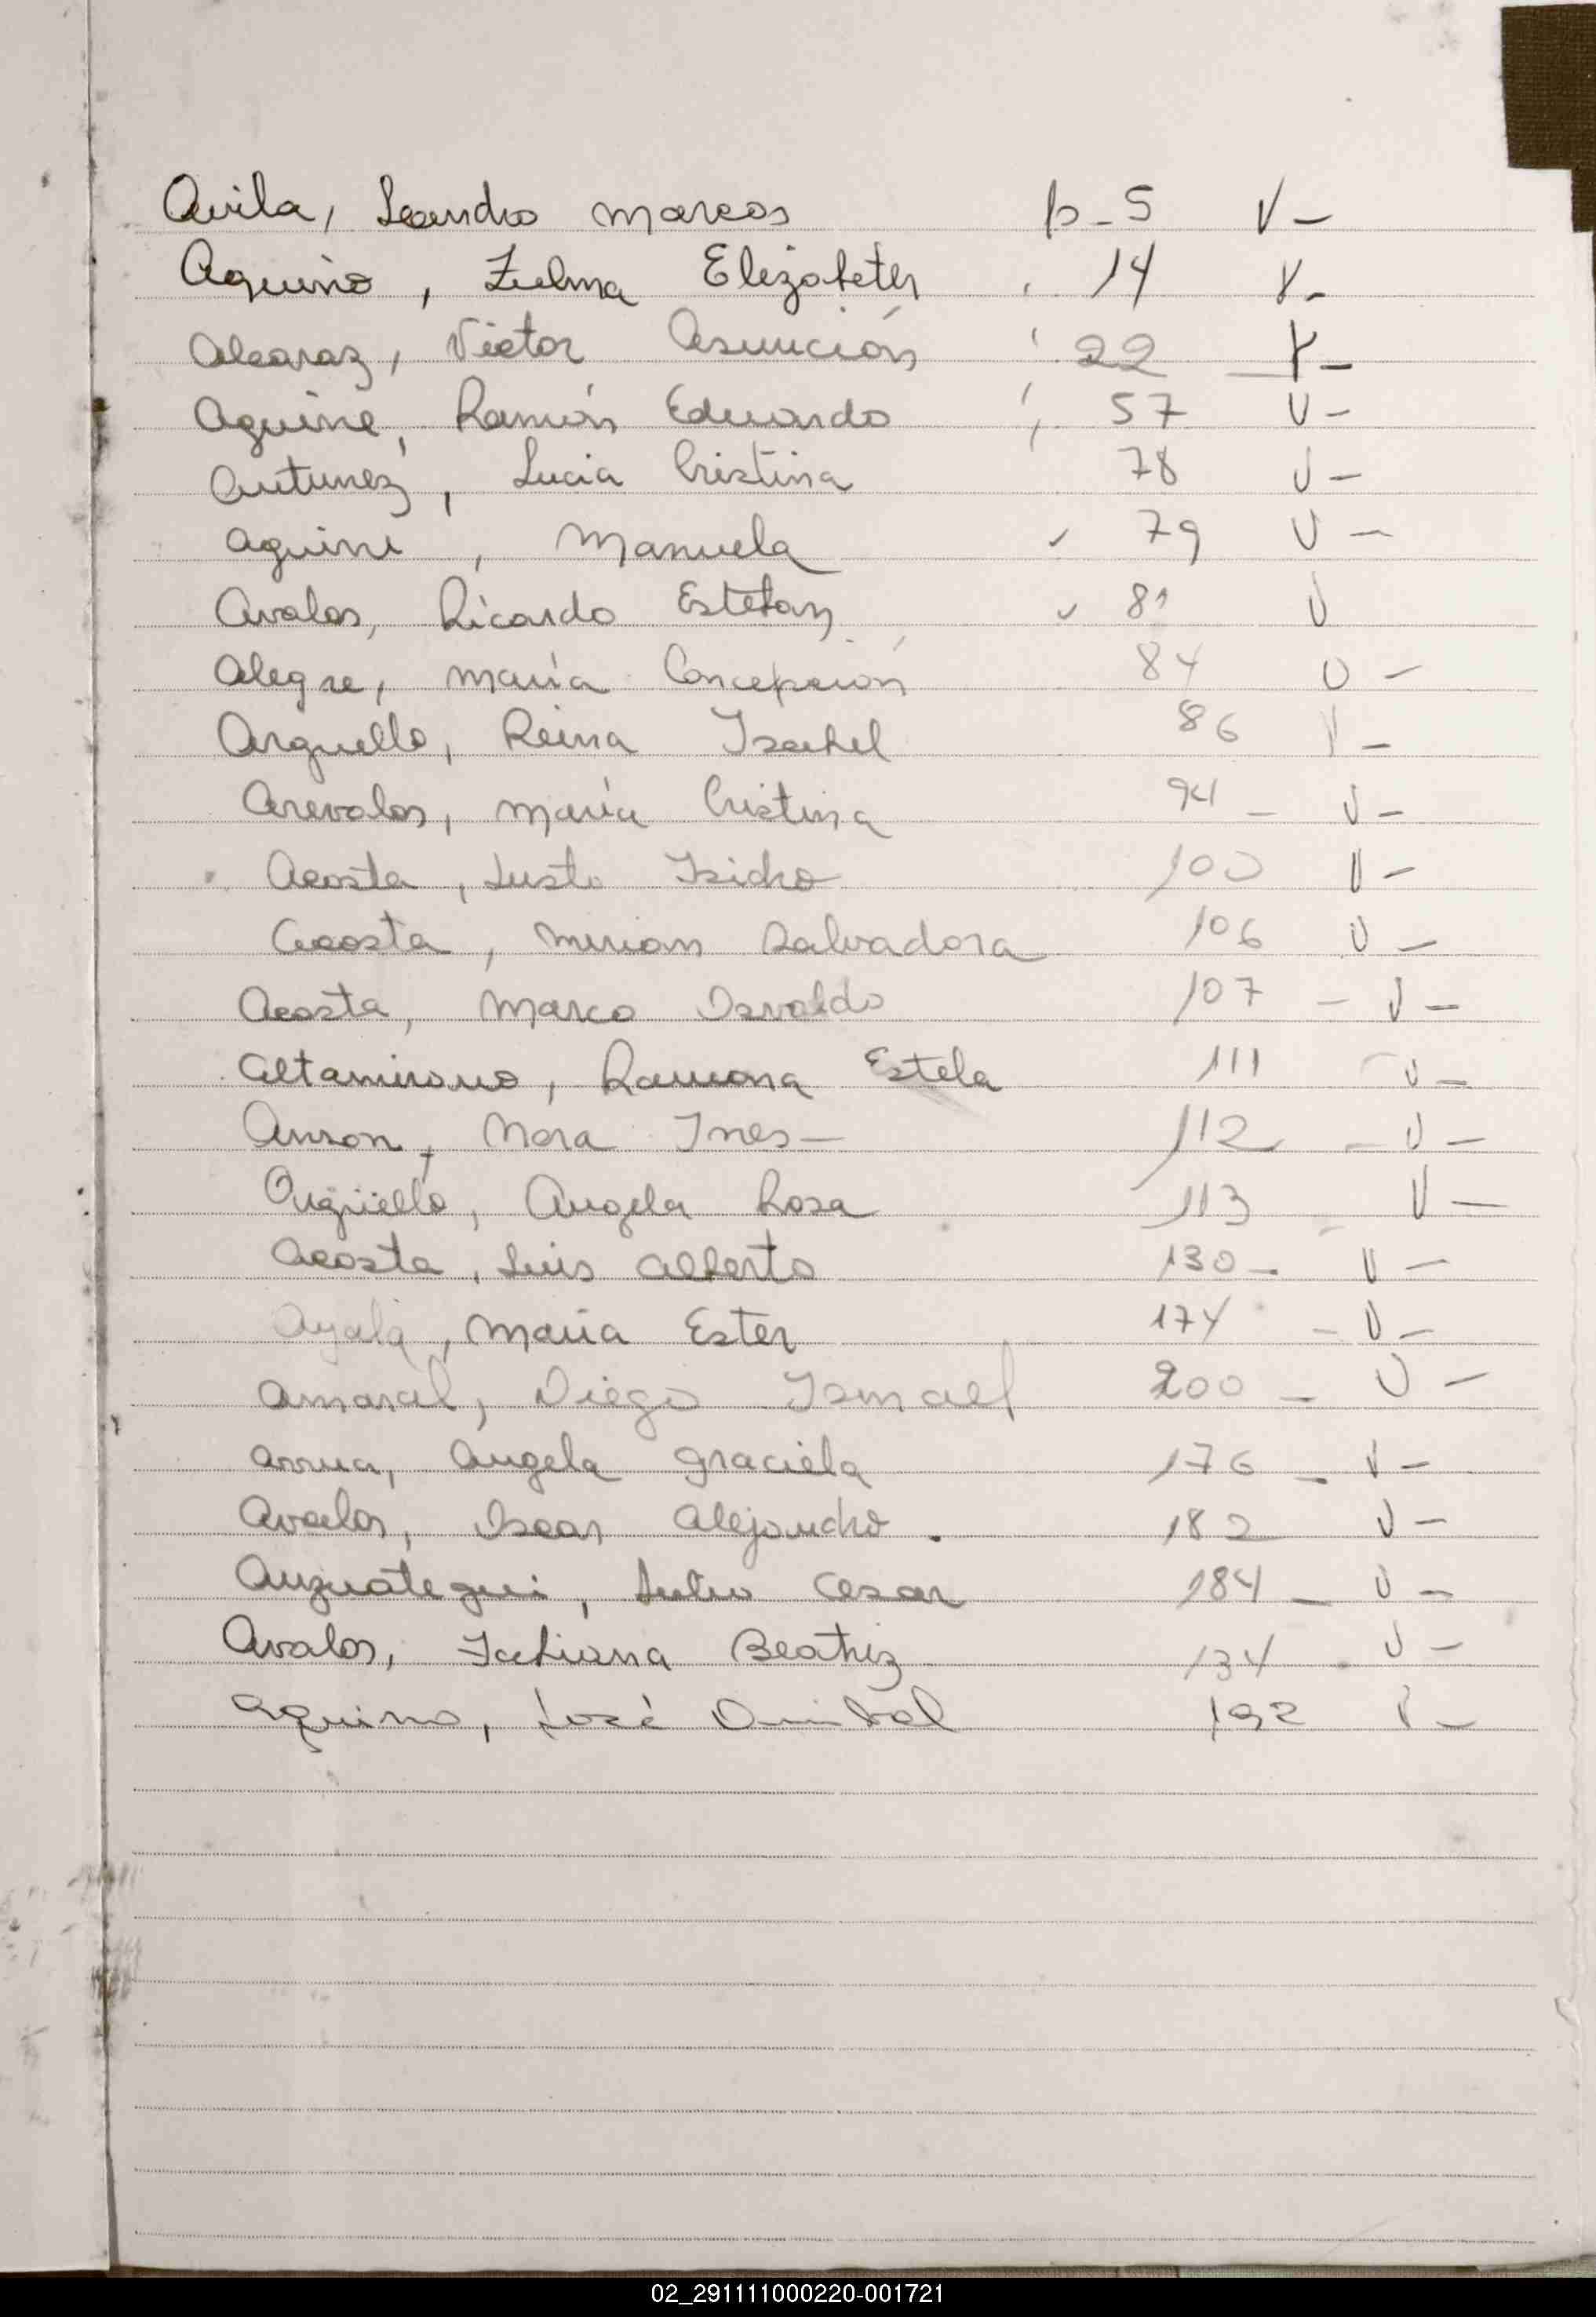 Avila, Leandro Marcos p-5 V-
Aquino, Zulma Elizabeth 14 V-
Alcaraz, Victor Asunción 22 V-
Aguirre, Ramón Eduardo 57 V-
Antunez, Lucia Cristina 78 V-
Aguirre, Manuela 79 V-
Avalos, Ricardo Esteban 81 V
Alegre, María Concepción 84 V-
Arguello, Reina Isabel 86 V-
Arevalos, María Cristina 94 - V-
Acosta, Justo Isidro 100 V-
Acosta, Mirian Salvadora 106 V-
Acosta, Marco Osvaldo 107 - V-
Altamirano, Ramona Estela 111 - V-
Anzon, Nora Ines- 112 - V-
Argüello, Angela Rosa 113 - V-
Acosta, Luis Alberto 130- V-
Ayala, María Ester 174 - V-
Amaral, Diego Ismael 200 - V-
Arrua, Angela Graciela 176 - V-
Avalos, Oscar Alejandro. 182 V-
Julio Cesar 184 - V-
Avalos, Tatiana Beatriz 134 - V-
Aquino, José 192 V-
02_291111000220-001721